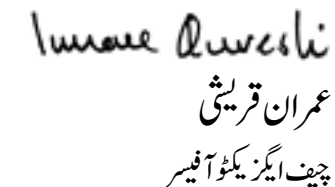 Imrane Qureshi
عمران قریشی
چیف ایگزیکٹو آفیسر